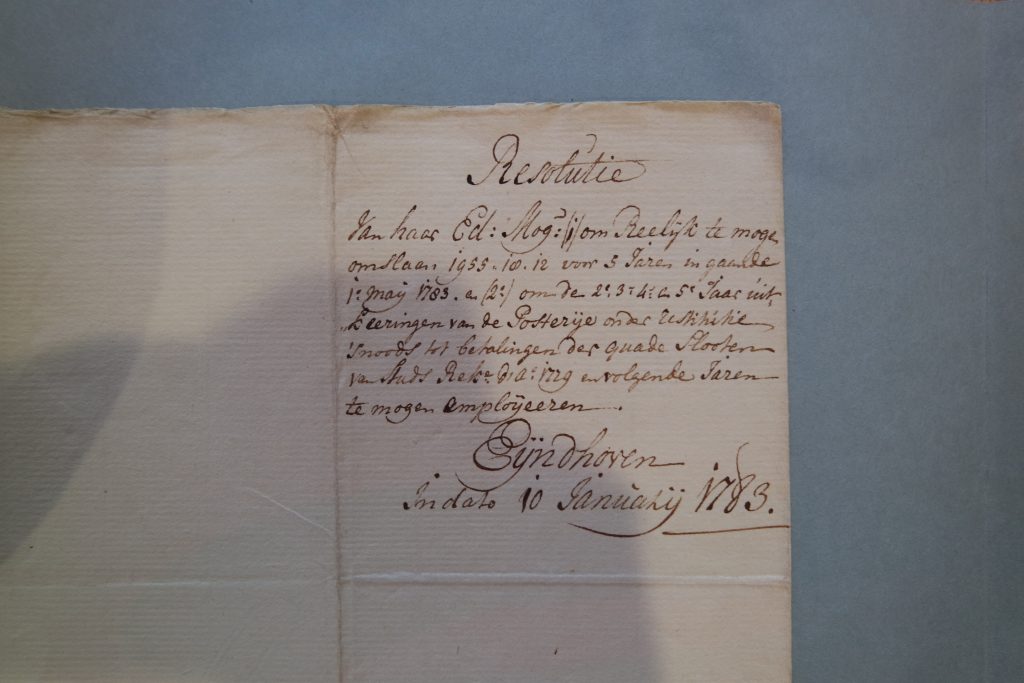 Resolutie
Van haar Ed: Mog: (1) om Reelijk te mogen
omslaan 1955.18.12 voor 5 Jaren in gaande
1e Maij 1783. en (2e) om de 2e 3e 4e en 5e Jaar uit
keeringen van de Posterije onder
'snoods tot betalingen der quade Slooten
van Stads Reke: 1729 en volgende Jaren
te mogen employeeren.
Eijndhoven
In dato 10 Januarij 1783.